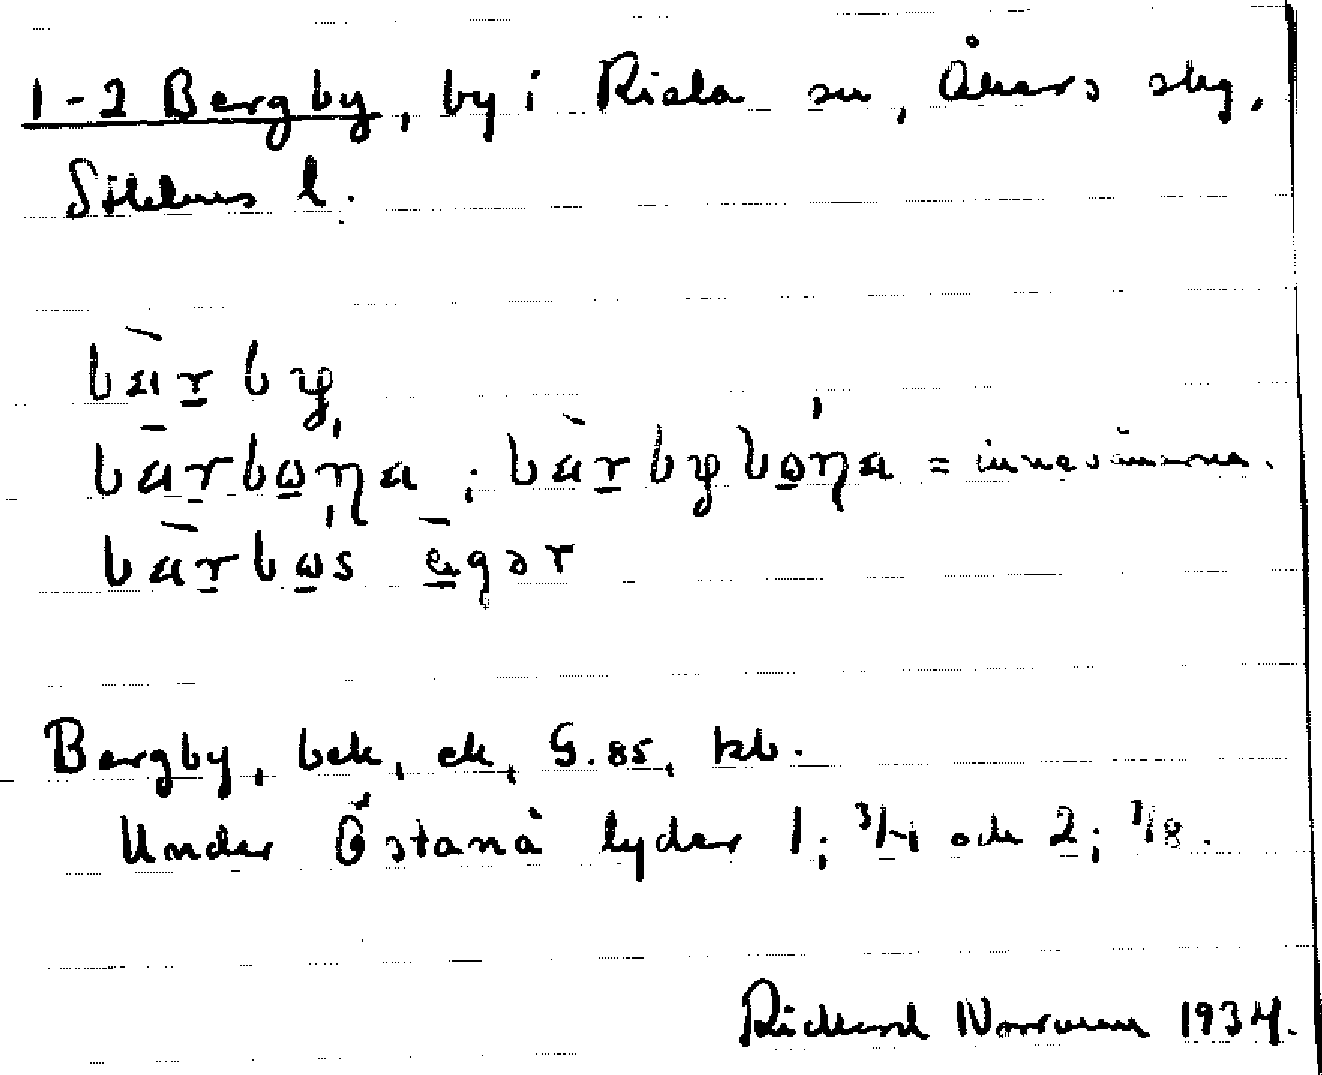 1-2 Bergby, by i Riala sn, Åkers skg,
Sthlms l.
bàrby,
bàrbωŋa ; bàrbybωŋa = innevånarna.
bàrbωs ägər
Bergby, bek, ek, G.85, kb.
Under Östanå lyder 1; 3/4 och 2; 7/8.
Rickard Norrman 1934.